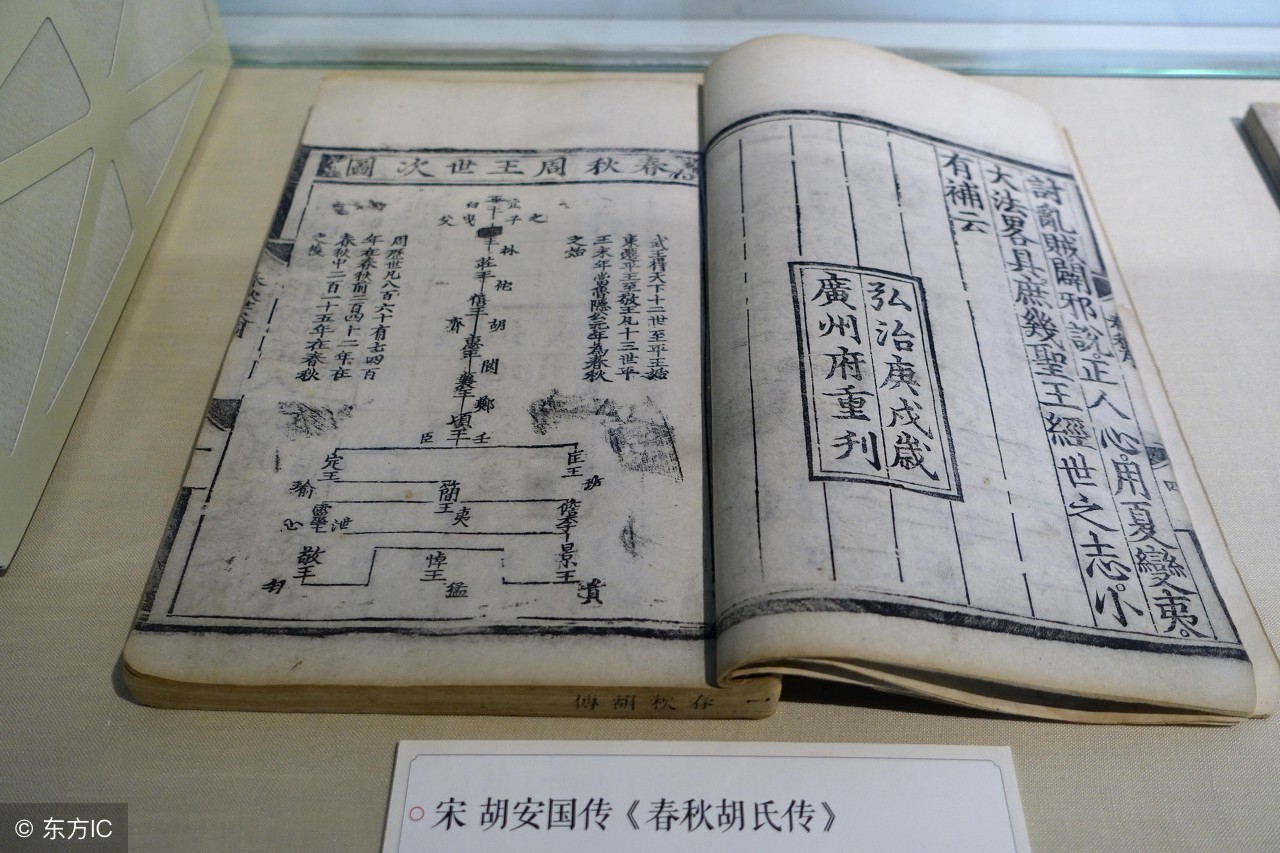 討亂賊闢邪說正人心用夏變夷
大法畧具庶幾聖王經世之志小
有補云
弘治庚戌歲
廣州府重刊
春秋周王世次圖
武王有天下十二世至平王始
東遷平王至敬王凡十三世平
王末年當魯隱公元年為春秋
之始
平王
宜
子
之
父
林
莊王
佗
僖王
胡
齊
惠王
閬
襄王
鄭
頃王
壬
臣
匡王
班
定王
瑜
簡王
夷
靈王
泄
心
景王
貴
悼王
猛
敬王
匄
周歷世凡八百六十有七四百
年在春秋前二百四十二年在
春秋中二百一十五年在春秋
之後
一 春秋胡傳
宋 胡安国传《春秋胡氏传》
© 东方IC